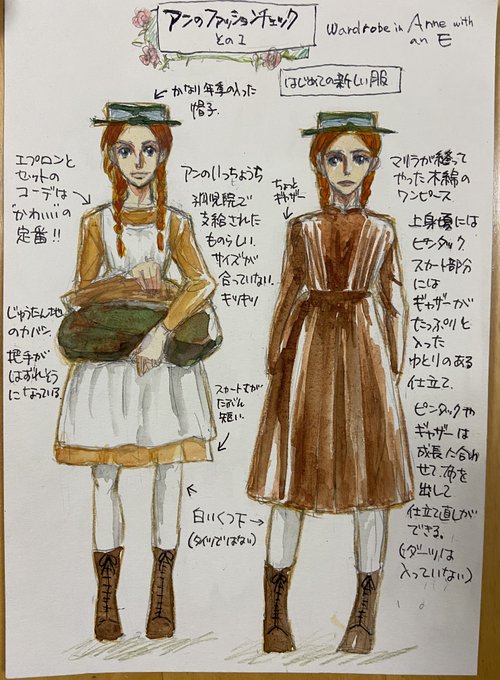 アンのファッションチェック
その1
Wardrobe in Anne with
an E
はじめての新しい服
かなり年季の入った
帽子
エプロンと
セットの
コーデは
"かわいい"の
定番!!
アンのいっちょうら
孤児院で
支給された
ものらしい
サイズが
合っていない.
キツキツ
じゅうたん地
のカバン.
把手が
はずれそう
になっている
スカートすが
短い.
白いくつ下
(タイツではない)
ちょっと
ギャザー
マリラが縫って
やった木綿の
ワンピース
上身頃には
ピンタック
スカート部分
には
ギャザーが
たっぷりと
入った
ゆとりのある
仕立て.
ピンタックや
ギャザーは
成長に合わ
せて
出して
仕立て直しが
できる.
(ダーツは
入っていない)